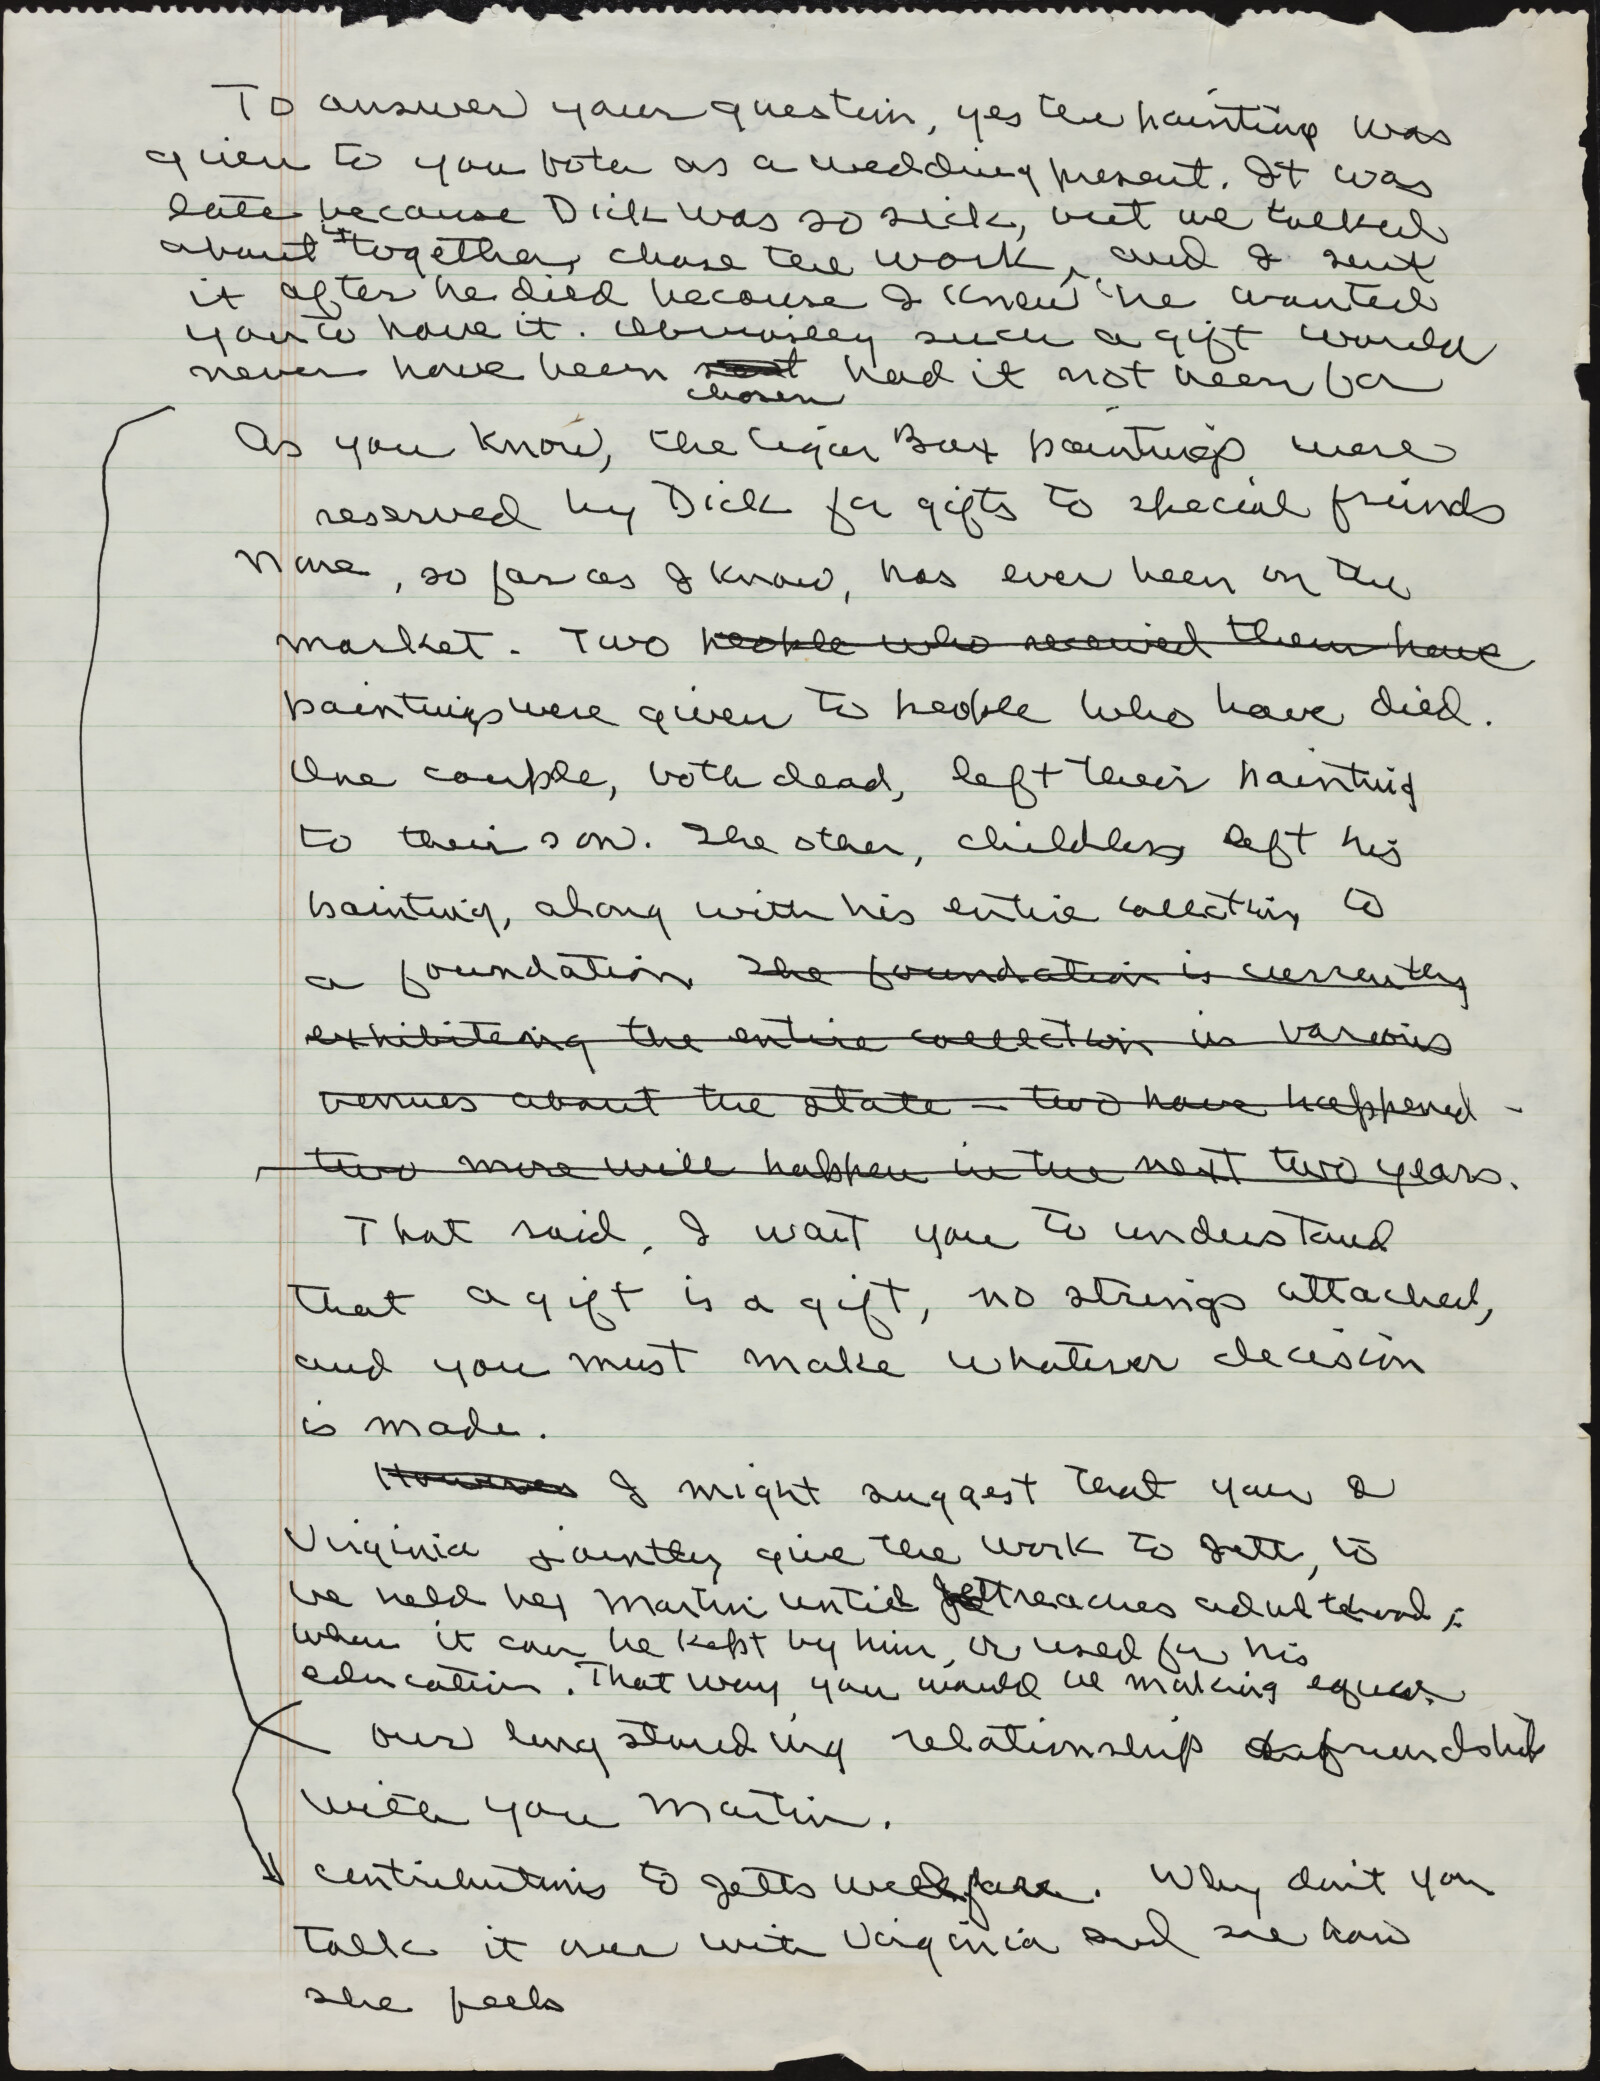 To answer your question, yes the painting was
given to you both as a wedding present. It was
late because Dick was so sick, but we talked
about it together, chose the work, and I sent
it after he died because I knew he wanted
you to have it. Obviously such a gift would
never have been sent chosen had it not been for
As you know, the Cigar Box paintings were
reserved by Dick for gifts to special friends
None, so far as I know, has ever been on the
market. Two people who received them have
paintings were given to people who have died.
One couple, both dead, left their painting
to their son. The other, childless left his
painting, along with his entire collection, to
a foundation. The foundation is currently
exhibiteing the entire collection in various
venues about the state - two have happened -
two more will happen in the next two years.
That said, I want you to understand
that a gift is a gift, no strings attached,
and you must make whatever decision
is made.
However I might suggest that you &
Virginia jointly give the work to Jett, to
be held by Martin until Jett reaches adulthood,
when it can be kept by him, or used for his
education. That way you would be making equal
our long standing relationship & friendship
with you Martin.
contributions to Jetts welfare. Why don't you
talk it over with Virginia and see how
she feels